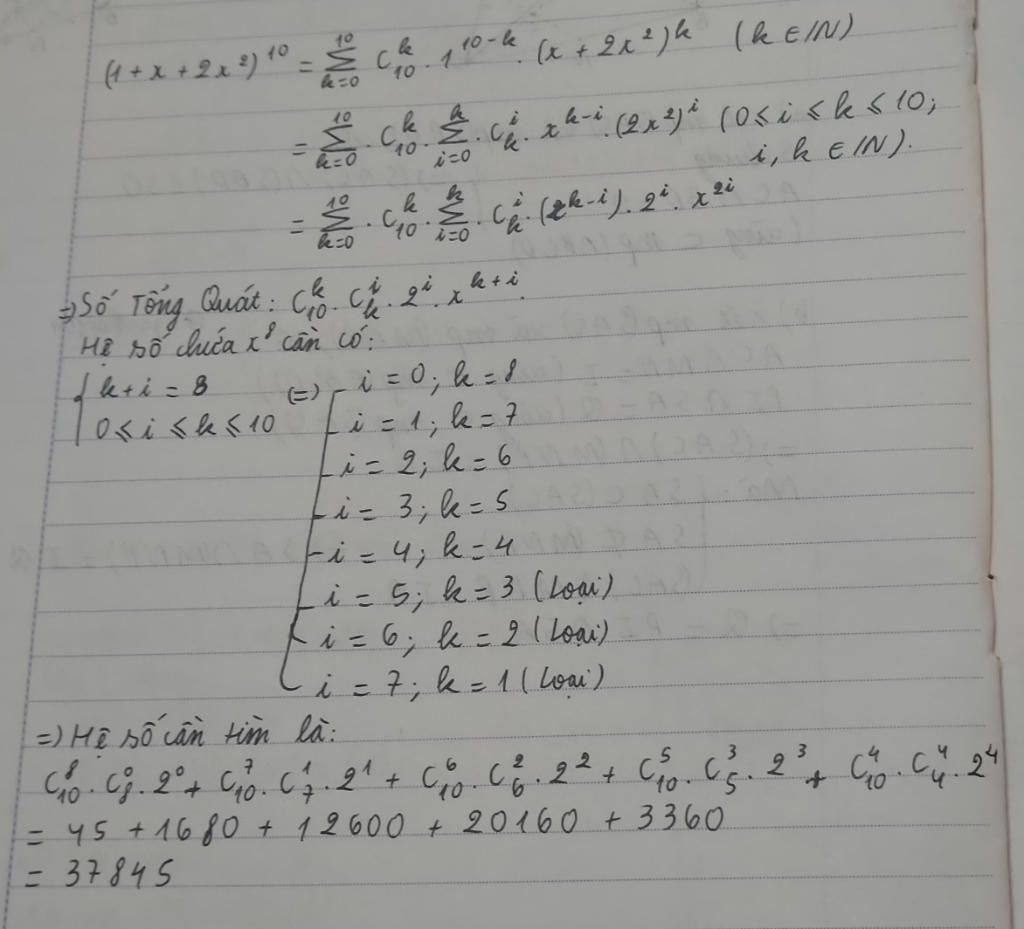 (1 + x + 2x²)¹⁰ = ∑_{k=0}^{10} C_{10}^{k} . 1^{10-k} . (x + 2x²)^k (k ∈ IN)
= ∑_{k=0}^{10} . C_{10}^{k} . ∑_{i=0}^{k} . C_{k}^{i} . x^{k-i} . (2x²)^i (0 ⩽ i ⩽ k ⩽ 10;
i, k ∈ IN).
= ∑_{k=0}^{10} . C_{10}^{k} . ∑_{i=0}^{k} . C_{k}^{i} . (x^{k-i}) . 2^i . x^{2i}
=> Số Tổng Quát: C_{10}^{k} . C_{k}^{i} . 2^i . x^{k+i}.
Hệ số chứa x⁸ cần có:
{ k + i = 8 (=) [ i = 0; k = 8
0 ⩽ i ⩽ k ⩽ 10 i = 1; k = 7
i = 2; k = 6
i = 3; k = 5
i = 4; k = 4
i = 5; k = 3 (Loại)
i = 6; k = 2 (Loại)
i = 7; k = 1 (Loại)
=) Hệ số cần tìm là:
C_{10}^{8} . C_{8}^{0} . 2⁰ + C_{10}^{7} . C_{7}^{1} . 2¹ + C_{10}^{6} . C_{6}^{2} . 2² + C_{10}^{5} . C_{5}^{3} . 2³ + C_{10}^{4} . C_{4}^{4} . 2⁴
= 45 + 1680 + 12600 + 20160 + 3360
= 37845